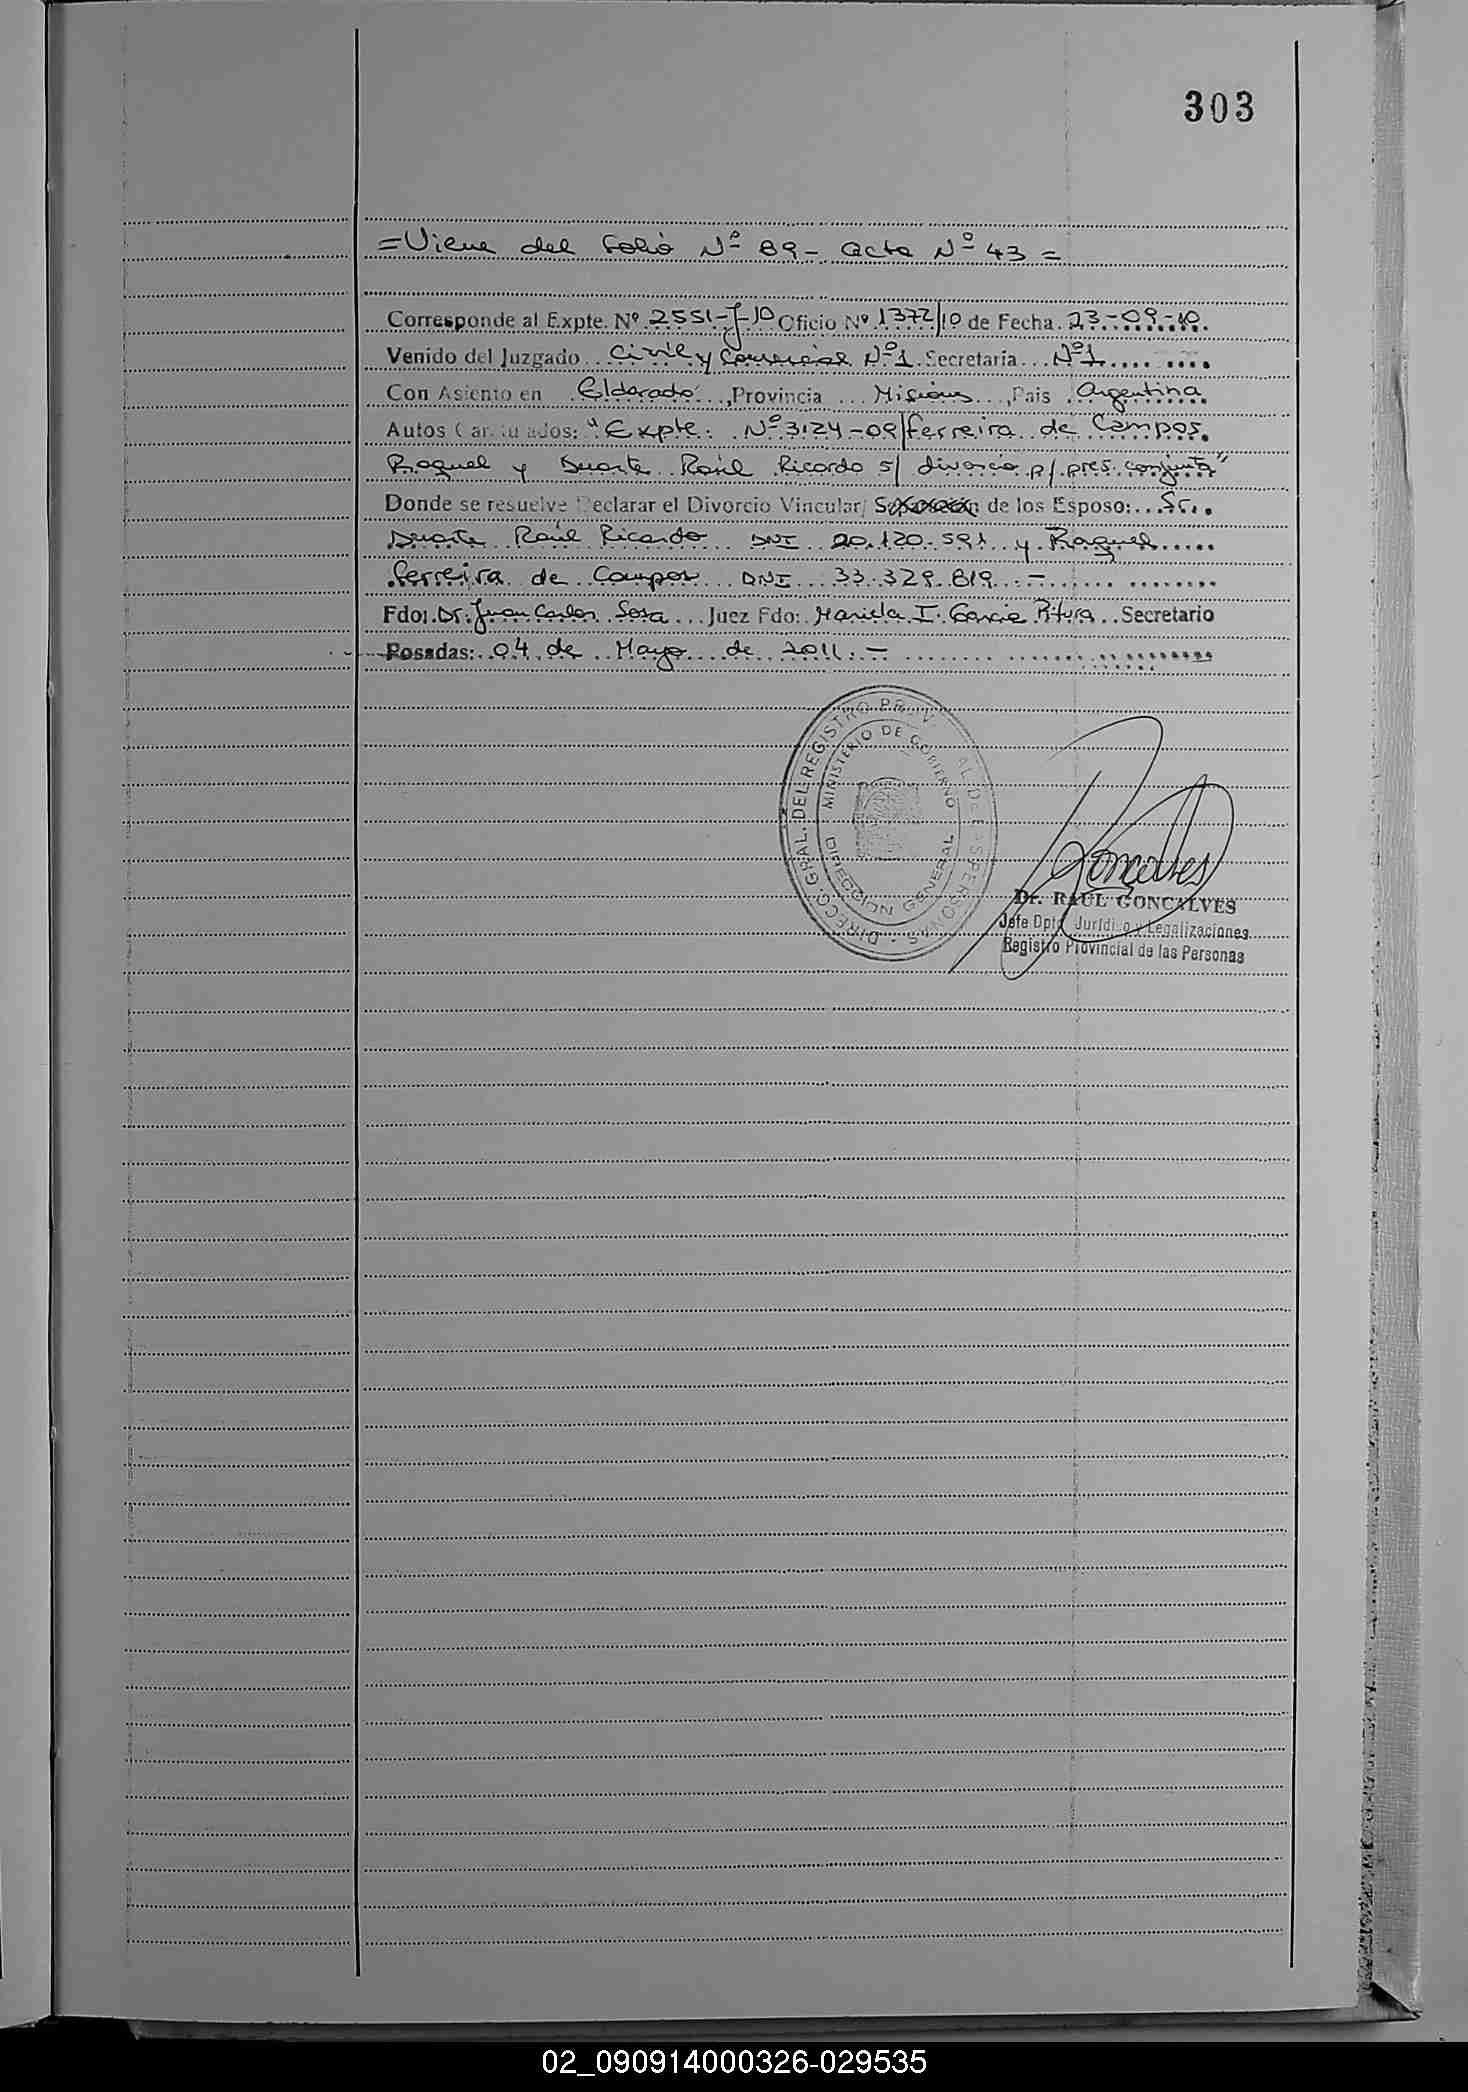 303
=Viene del folio Nº 89- acta Nº 43=
Corresponde al Expte. Nº 2551-J-10 Oficio Nº 1372/10 de Fecha 23-09-10
Venido del Juzgado Civil y Comercial Nº1 Secretaria Nº1
Con Asiento en Eldorado, Provincia Misiones, Pais Argentina
Autos Caratulados: "Expte. Nº 3124-09/ferreira de Campos
Raquel y Duarte Raúl Ricardo s/ divorcio p/ pres. conjunta"
Donde se resuelve Declarar el Divorcio Vincular/ Separación de los Esposo: Sr.
Duarte Raúl Ricardo DNI 20.120.591 y Raquel
ferreira de Campos DNI 33.329.819.-
Fdo: Dr. Juan Carlos Sosa Juez Fdo: Mariela I. Garcia Secretario
Posadas: 04 de Mayo de 2011.-
DIRECC. GRAL. DEL REGISTRO PROV AL DE PERSONAS
MINISTERIO DE GOBIERNO
DIRECCION GENERAL
Goncalves
Dr. RAUL GONCALVES
Jefe Dpto. Jurídico y Legalizaciones
Registro Provincial de las Personas
02_090914000326-029535